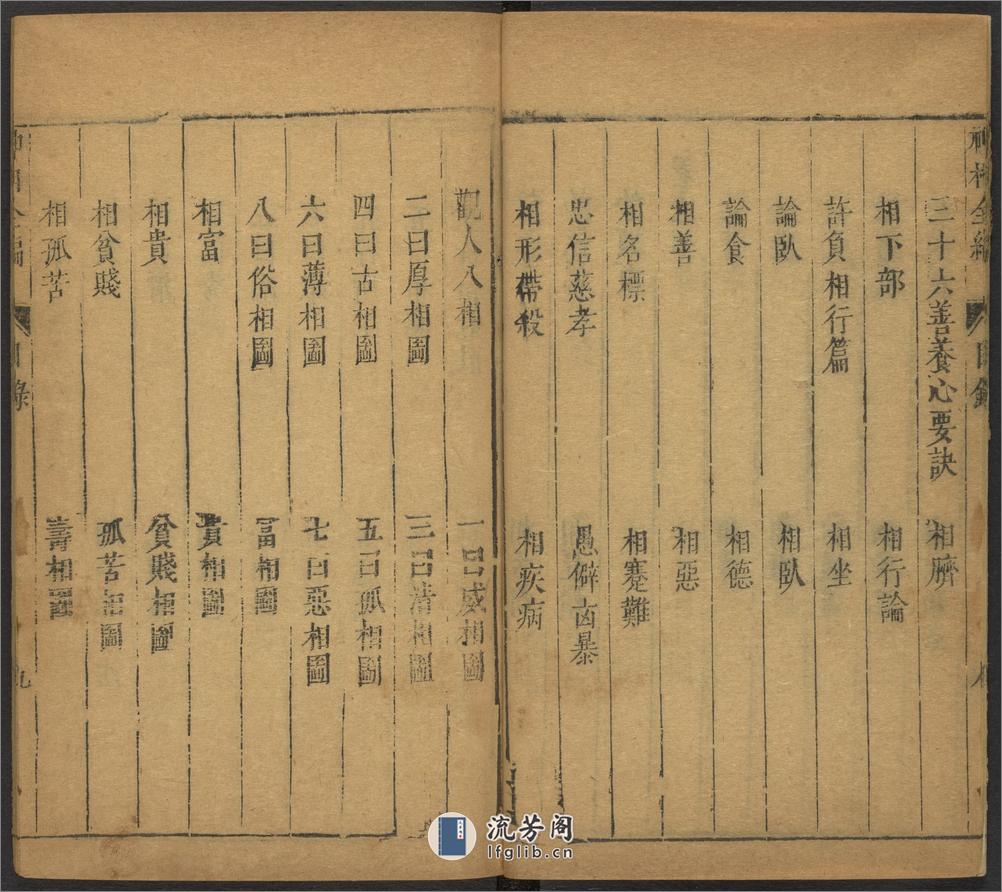 神相全編 目錄
三十六善養心要訣 相臍
相下部 相行論
許負相行篇 相坐
論臥 相臥
論食 相德
相善 相惡
相名標 相蹇難
忠信慈孝 愚僻凶暴
相形帶殺 相疾病
觀人八相 一曰威相圖
二曰厚相圖 三曰清相圖
四曰古相圖 五曰孤相圖
六曰薄相圖 七曰惡相圖
八曰俗相圖 富相圖
相富 貴相圖
相貴 貧賤相圖
相貧賤 孤苦相圖
相孤苦 壽相圖
目錄 九
流芳阁
lfglib.cn